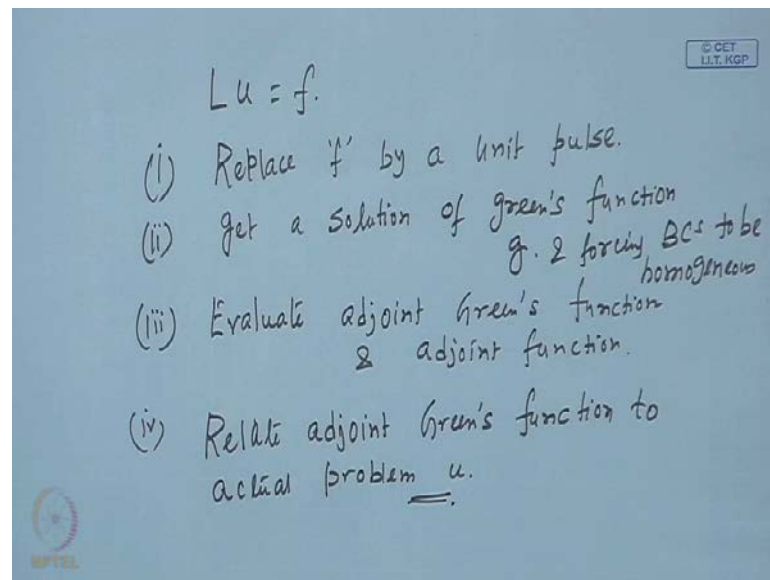 © CET
I.I.T. KGP
Lu = f.
(i) Replace 'f' by a unit pulse.
(ii) get a solution of green's function
g. & forcing BCs to be
homogeneous
(iii) Evaluate adjoint Green's function
& adjoint function.
(iv) Relate adjoint Green's function to
actual problem u.
NPTEL